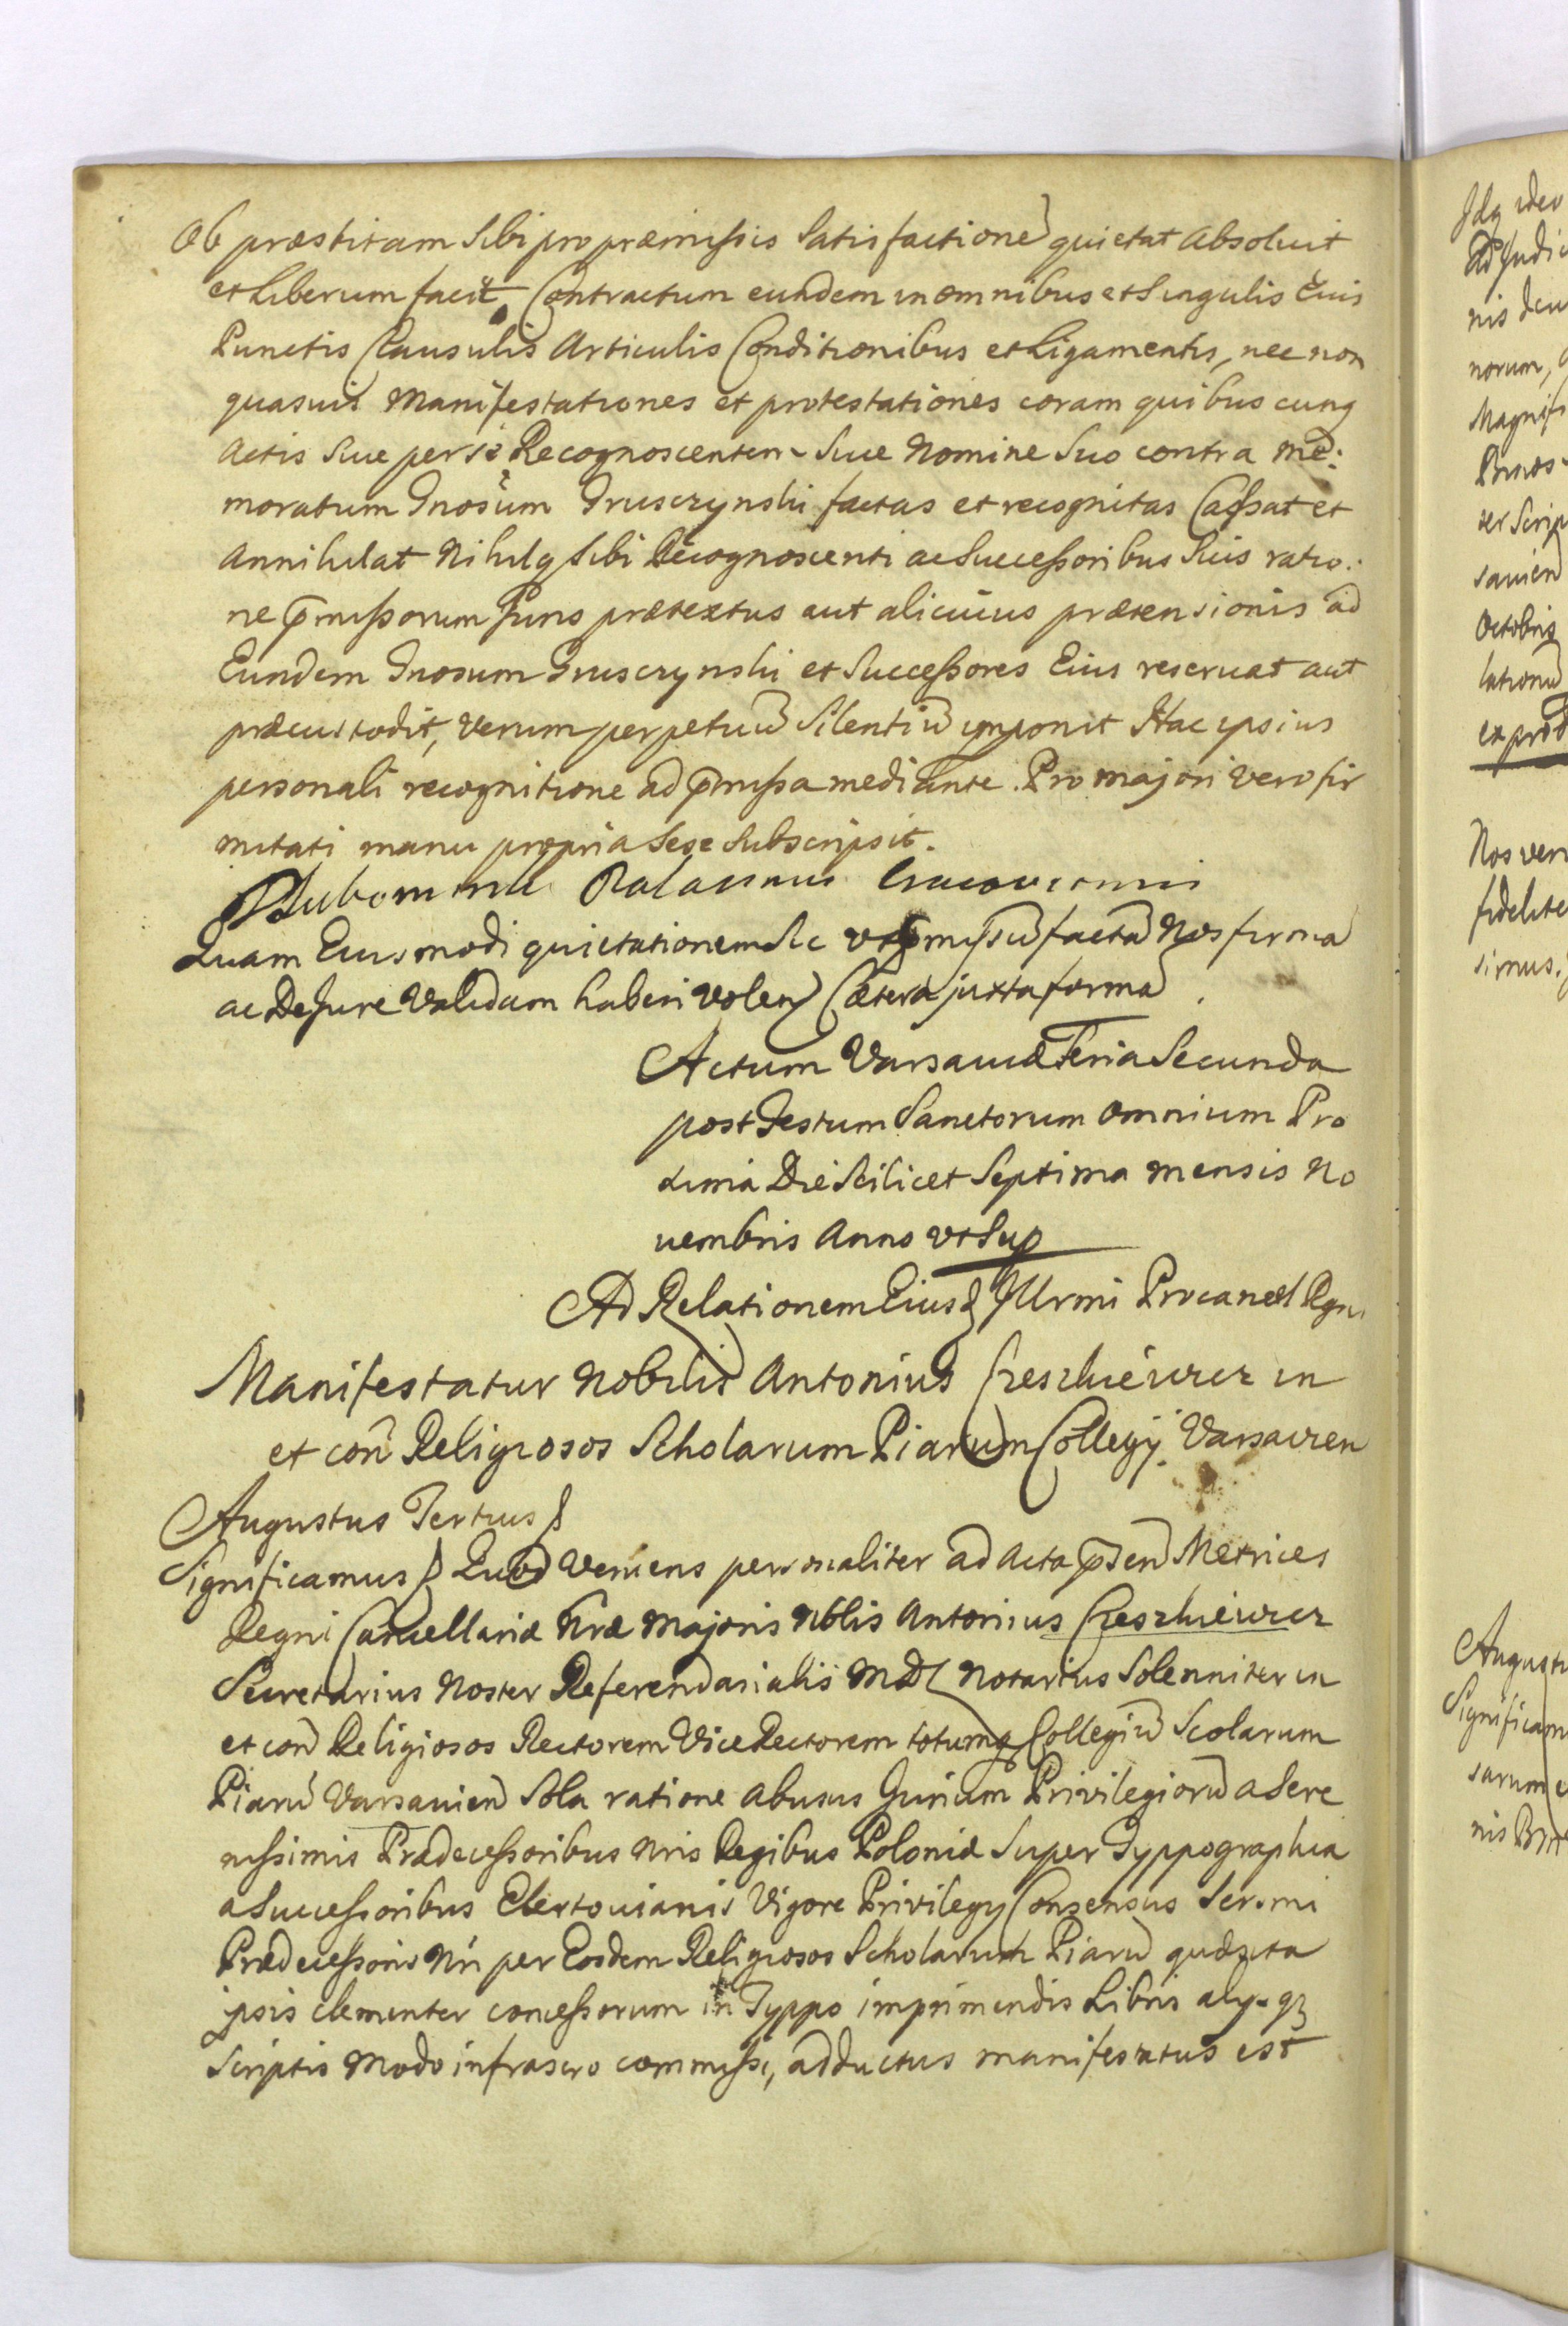 Ob præstitam sibi pro præmissis Satisfactione quietat Absoluit
et Liberum facit, Contractum eundem in omnibus et Singulis Eius
Punctis Clausulis Articulis Conditionibus et Ligamentis, nec non
quasuis Manifestationes et protestationes coram quibus cunq
Actis Siue per se Recognoscentem Siue Nomine Suo contra me:
moratum Gnosum Gruszczynski factas et recognitas Cassat et
Annihilat Nihilq sibi Recognoscenti ac Successoribus Suis ratio:
ne pmissorum Juris prætextus aut alicuius prætensionis ad
Eundem Gnosum Gruszczynski et Successores Eius reseruat aut
præcustodit, Verum perpetuu Silentiu imponit Hac ipsius
personali recognitione ad pmissa mediante. Pro majori vero fir
mitati manu propria Sese Subscripsit.
Lubomirski Palatinus Cracoviensis
Quam Eiusmodi quietationem Sic vt pmissu facta Nos firma
ac De Jure Validam haberi volen Cætera juxta forma.
Actum Varsauiæ Feria Secunda
post Festum Sanctorum Omnium Pro
xima Die Scilicet Septima mensis No
uembris Anno vt Sup
Ad Relationem Eiusd Illrmi Procancel Rgni
Manifestatur Nobilis Antonius Cieszkiewicz in
et con Religiosos Scholarum Piarum Collegij Varsavien
Augustus Tertius
Significamus Quod Veniens personaliter ad Acta psen Metrices
Regni Cancellariæ Nræ Majoris Nblis Antonius Cieszkiewicz
Secretarius Noster Referendarialis MDL Notarius Solenniter in
et con Religiosos Rectorem Vice Rectorem totumq Collegiu Scolarum
Piaru Varsauien Sola ratione abusus Jurium Privilegioru a Sere
nissimis Prædecessoribus Nris Regibus Poloniæ Super Typpographia
a Successoribus Elertouianis Vigore Privilegy Consensus Sersmi
Prædecessoris Nri per Eosdem Religiosos Scholarum Piaru quæsita
ipsis clementer concessorum in Typpo imprimendis Libris alysq
Scriptis modo infrascro commissi, adductus manifestatus est